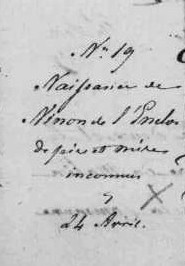 N.° 19
Naissance de
Ninon de l'Enclos
de père et mère
inconnus
24 Avril.